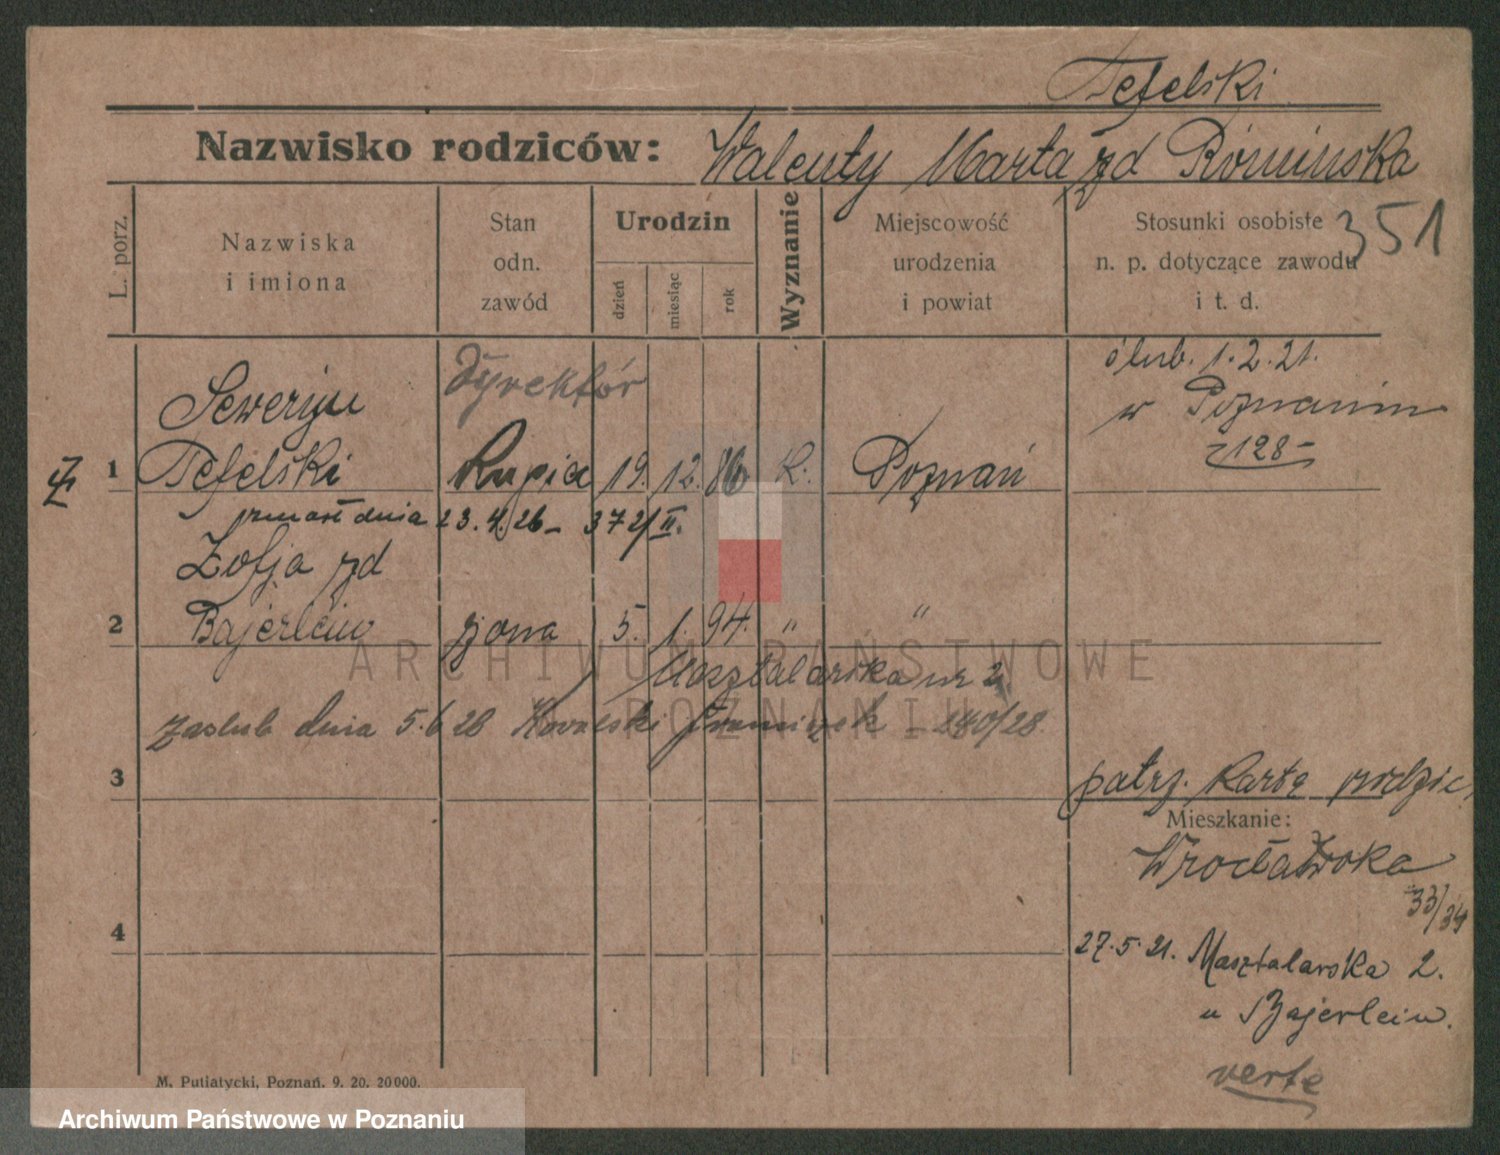 Tefelski
Nazwisko rodziców: Walenty Marta zd Rómińska
L. porz.
Nazwiska
i imiona
Stan
odn.
zawód
Urodzin
dzień
miesiąc
rok
Wyznanie
Miejscowość
urodzenia
i powiat
Stosunki osobiste
n. p. dotyczące zawodu
i t. d.
351
ślub. 1. 2. 21.
w Poznaniu
128
Dyrektór
Seweryn
1 Tefelski Kupiec 19. 12. 86 K. Poznań
zmarł dnia 23. 4. 26 – 372/II.
Zofja zd
2 Bajerlein żona 5. 1. 94. " "
Masztalarska nr 2
zaślub dnia 5. 6 28 Kowalski Franciszek 280/28.
3
patrz. Kartę rodzic.
Mieszkanie:
Wrocławska
33/34
4
27. 5. 21. Masztalarska 2.
u Bajerlein.
verte
M. Putiatycki, Poznań. 9. 20. 20000.
ARCHIWUM PAŃSTWOWE
POZNANIU
Archiwum Państwowe w Poznaniu